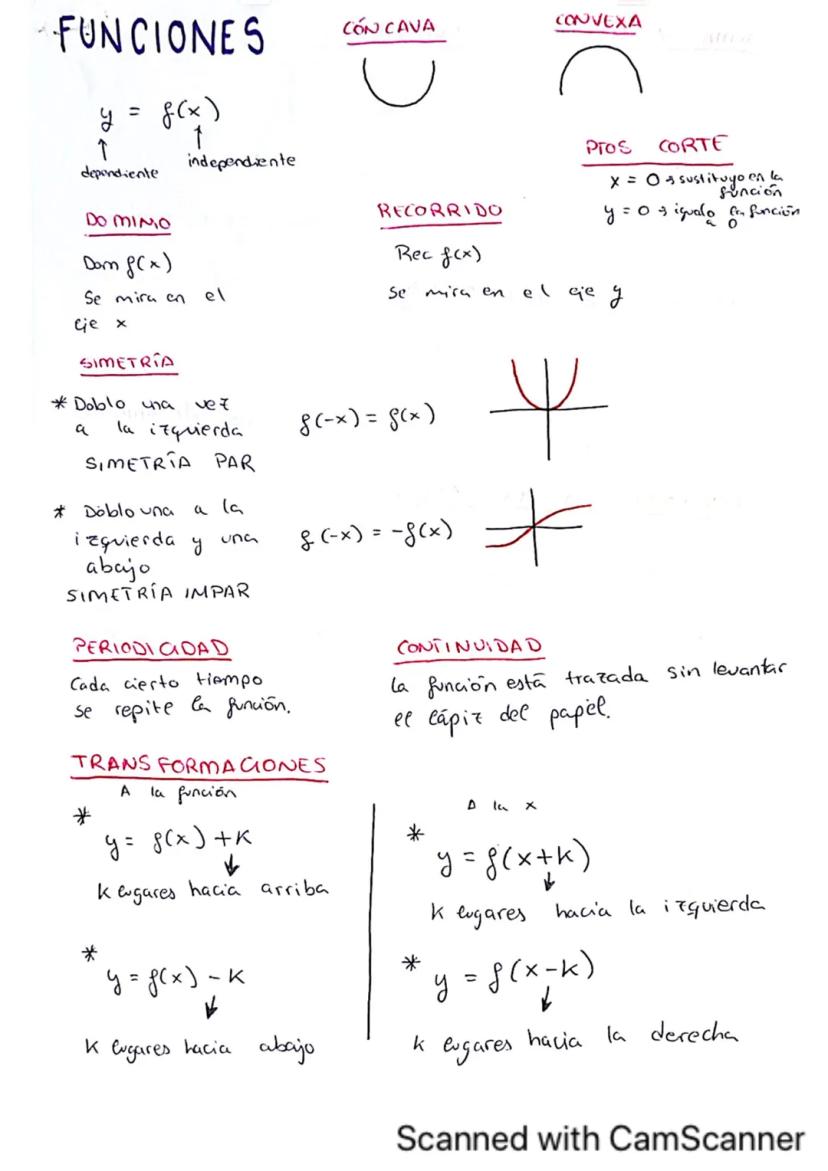 FUNCIONES
CÓNCAVA
CONVEXA
y = f(x)
dependiente
independiente
PTOS CORTE
x = 0 → sustituyo en la
función
y = 0 → igualo la función
a 0
DOMINIO
Dom f(x)
Se mira en el
eje x
RECORRIDO
Rec f(x)
Se mira en el eje y
SIMETRÍA
* Doblo una vez
a la izquierda
SIMETRÍA PAR
f(-x) = f(x)
* Doblo una a la
izquierda y una
abajo
SIMETRÍA IMPAR
f(-x) = -f(x)
PERIODICIDAD
Cada cierto tiempo
se repite la función.
CONTINUIDAD
La función está trazada sin levantar
el lápiz del papel.
TRANSFORMACIONES
A la función
*
y = f(x) + K
K lugares hacia arriba
*
y = f(x) - K
K lugares hacia abajo
A la x
*
y = f(x+k)
K lugares hacia la izquierda
*
y = f(x-k)
k lugares hacia la derecha
Scanned with CamScanner